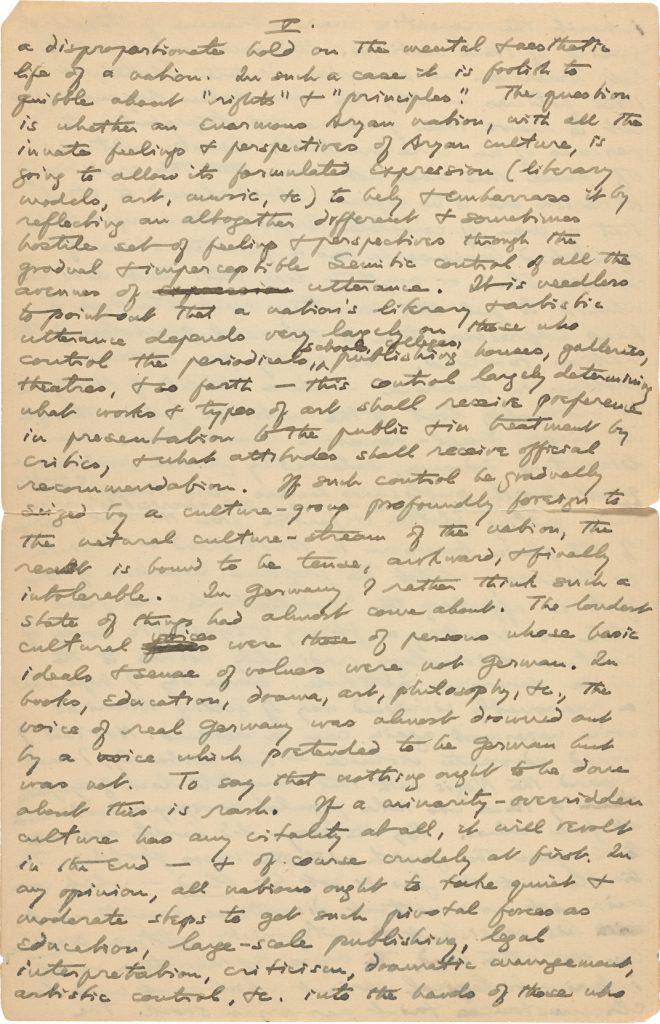 V.
a disproportionate hold on the mental & aesthetic
life of a nation. In such a case it is foolish to
quibble about "rights" & "principles". The question
is whether an enormous Aryan nation, with all the
innate feelings & perspectives of Aryan culture, is
going to allow its formulated expression (literary
models, art, music, &c) to bely & embarrass it by
reflecting an altogether different & sometimes
hostile set of feelings & perspectives through the
gradual & imperceptible Semitic control of all the
avenues of expression utterance. It is needless
to point out that a nation's literary & artistic
utterance depends very largely on those who
schools, colleges,
control the periodicals, publishing houses, galleries,
theatres, & so forth — this control largely determining
what works & types of art shall receive preference
in presentation to the public & in treatment by
critics, & what attitudes shall receive official
recommendation. If such control be gradually
seized by a culture-group profoundly foreign to
the natural culture-stream of the nation, the
result is bound to be tense, awkward, & finally
intolerable. In Germany I rather think such a
state of things had almost come about. The loudest
cultural voices were those of persons whose basic
ideals & sense of values were not German. In
books, education, drama, art, philosophy, &c., the
voice of real Germany was almost drowned out
by a voice which pretended to be German but
was not. To say that nothing ought to be done
about this is rash. If a minority-overridden
culture has any vitality at all, it will revolt
in the end — & of course crudely at first. In
my opinion, all nations ought to take quiet &
moderate steps to get such pivotal forces as
education, large-scale publishing, legal
interpretation, criticism, dramatic arrangement,
artistic control, &c. into the hands of those who